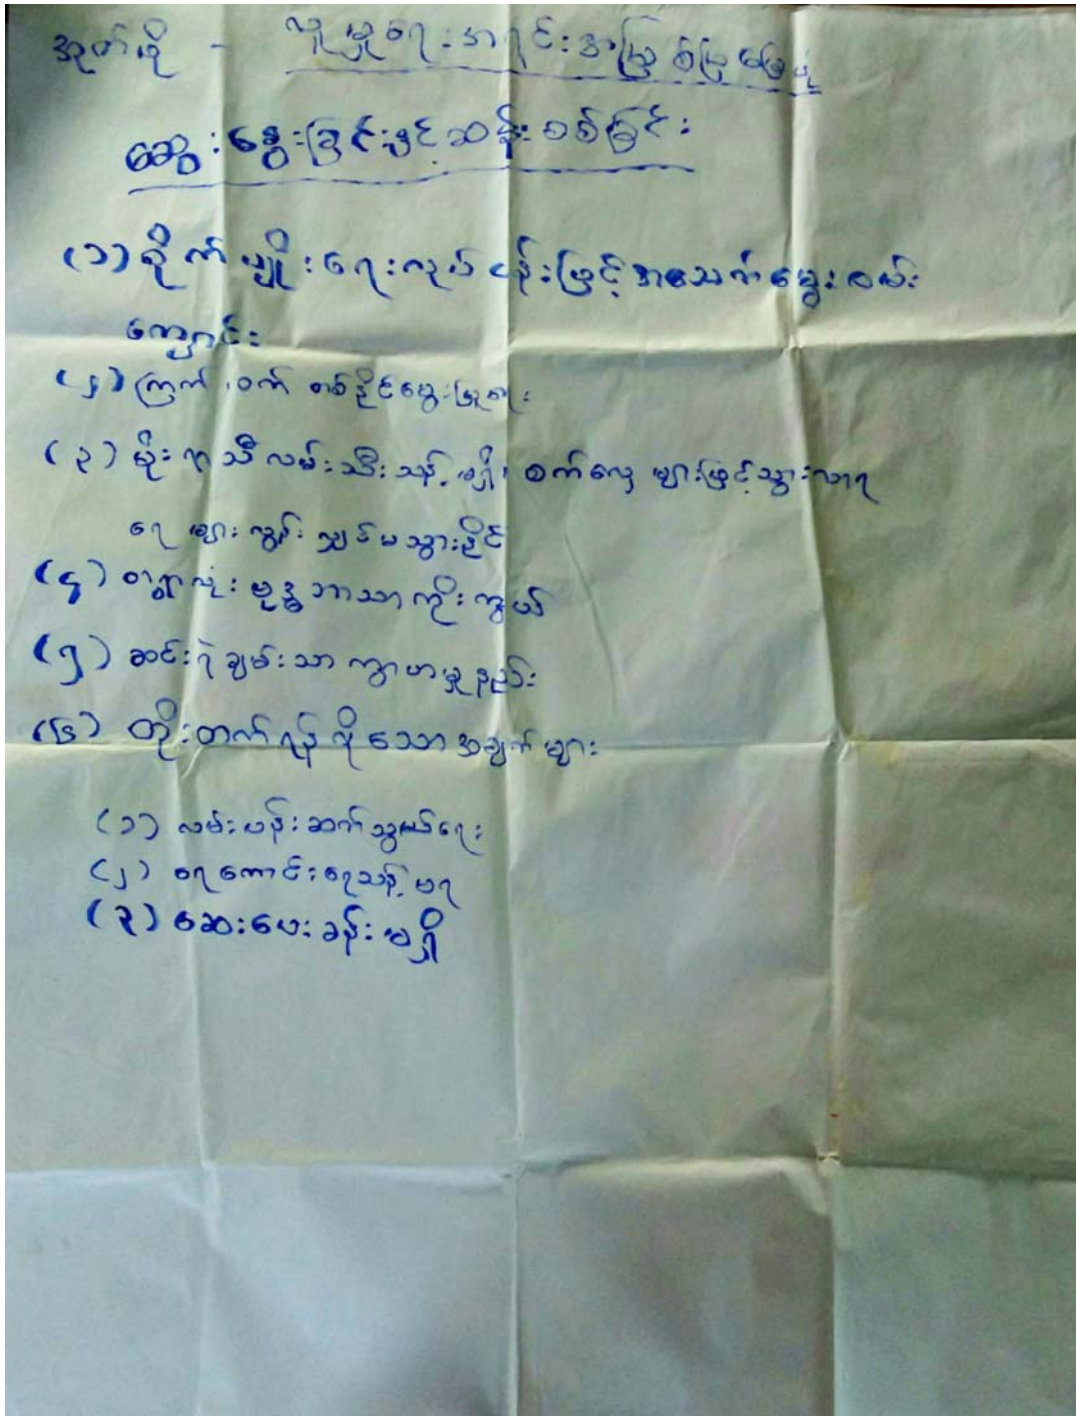 အုတ်ဖို - လူမှုရေးအရင်းအမြစ်ပြမြေပုံ
ဆွေးနွေးခြင်းနှင့်ဆန်းစစ်ခြင်း
(၁) စိုက်ပျိုးရေးလုပ်ငန်းဖြင့်အသက်မွေးဝမ်း
ကျောင်း
(၂) ကြက် ၊ ဝက် တစ်နိုင်မွေးမြူရေး
(၃) မိုးရာသီလမ်းသီးသန့်မရှိ၊ စက်လှေများဖြင့်သွားလာရ
ရေများလွန်းလျှင်မသွားနိုင်
(၄) တရွာလုံးဗုဒ္ဓဘာသာကိုးကွယ်
(၅) ဆင်းရဲချမ်းသာကွာဟမှုနည်း
(၆) တိုးတက်ရန်လိုသောအချက်များ
(၁) လမ်းပန်းဆက်သွယ်ရေး
(၂) ရေကောင်းရေသန့်မရ
(၃) ဆေးပေးခန်းမရှိ